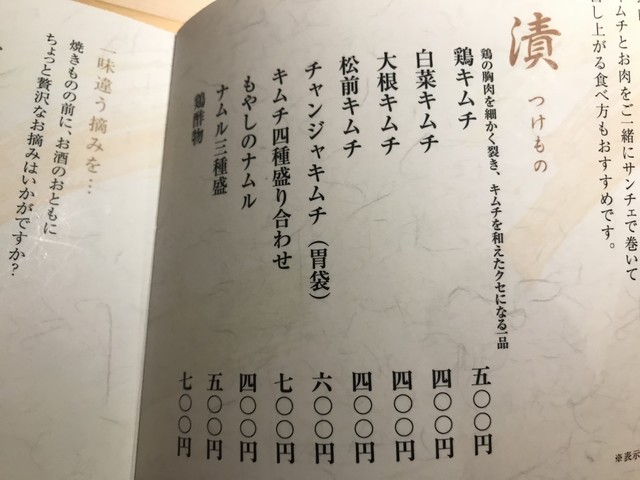 キムチとお肉をご一緒にサンチェで巻いて
召し上がる食べ方もおすすめです。
漬 つけもの
鶏の胸肉を細かく裂き、キムチを和えたクセになる一品
鶏キムチ 五〇〇円
白菜キムチ 四〇〇円
大根キムチ 四〇〇円
松前キムチ 四〇〇円
チャンジャキムチ（胃袋） 六〇〇円
キムチ四種盛り合わせ 七〇〇円
もやしのナムル 四〇〇円
ナムル三種盛 五〇〇円
鶏酢物 七〇〇円
※表示
一味違う摘みを…
焼きものの前に、お酒のおともに
ちょっと贅沢なお摘みはいかがですか？